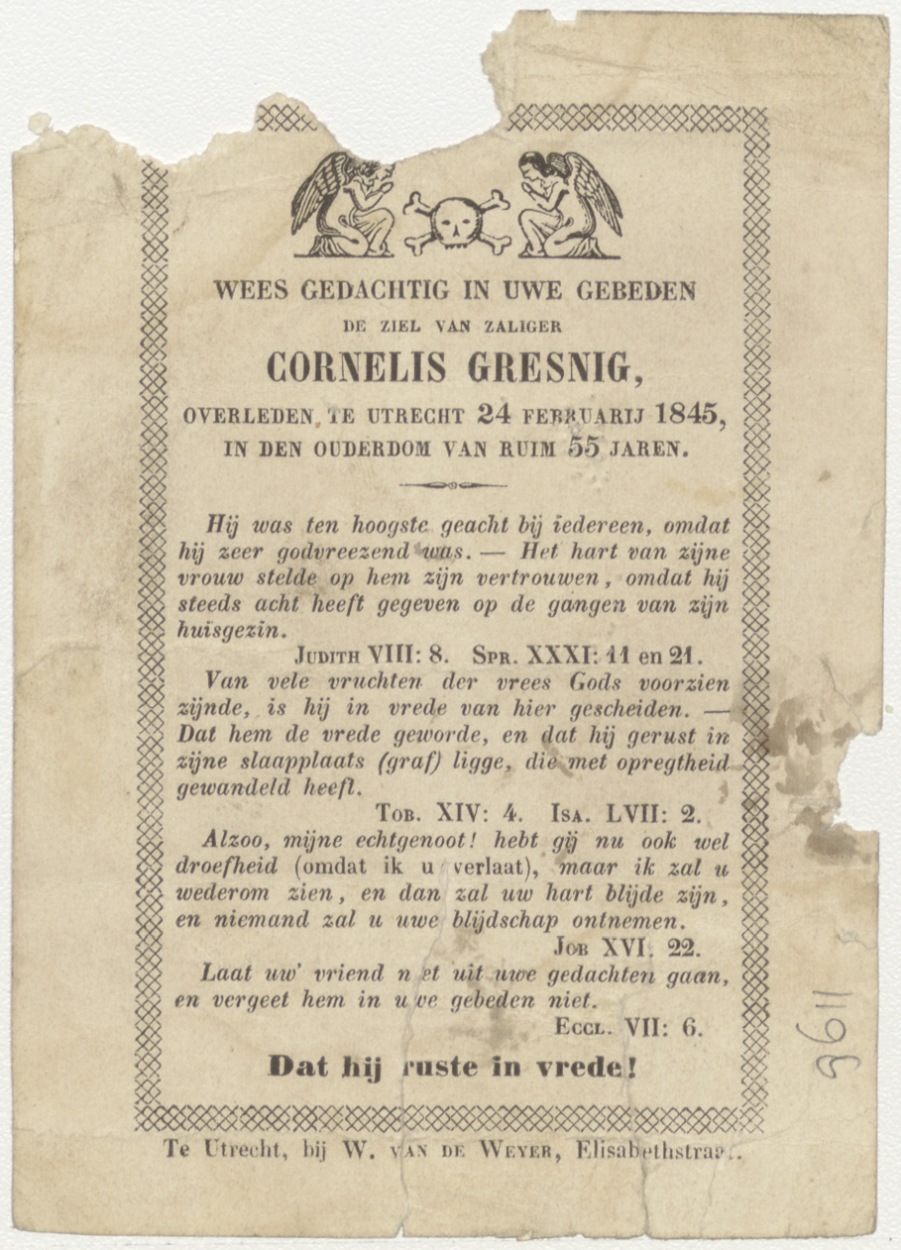 WEES GEDACHTIG IN UWE GEBEDEN
DE ZIEL VAN ZALIGER
CORNELIS GRESNIG,
OVERLEDEN TE UTRECHT 24 FEBRUARIJ 1845,
IN DEN OUDERDOM VAN RUIM 55 JAREN.
Hij was ten hoogste geacht bij iedereen, omdat
hij zeer godvreezend was. — Het hart van zijne
vrouw stelde op hem zijn vertrouwen, omdat hij
steeds acht heeft gegeven op de gangen van zijn
huisgezin.
JUDITH VIII: 8. SPR. XXXI: 11 en 21.
Van vele vruchten der vrees Gods voorzien
zijnde, is hij in vrede van hier gescheiden. —
Dat hem de vrede geworde, en dat hij gerust in
zijne slaapplaats (graf) ligge, die met opregtheid
gewandeld heeft.
TOB. XIV: 4. ISA. LVII: 2.
Alzoo, mijne echtgenoot! hebt gij nu ook wel
droefheid (omdat ik u verlaat), maar ik zal u
wederom zien, en dan zal uw hart blijde zijn,
en niemand zal u uwe blijdschap ontnemen.
JOB XVI. 22.
Laat uw' vriend niet uit uwe gedachten gaan,
en vergeet hem in uwe gebeden niet.
ECCL. VII: 6.
Dat hij ruste in vrede!
Te Utrecht, bij W. VAN DE WEYER, Elisabethstraat.
9611